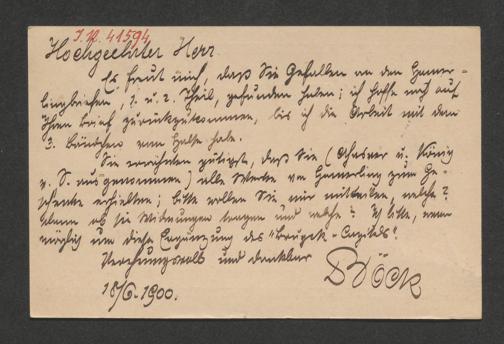 I.N. 41594
Hochgeehrter Herr
Es freut mich, daß Sie Gefallen an den Hamer-
lingbriefen, 1. u. 2. Theil, gefunden haben; ich hoffe noch auf
Ihren Brief zurückzukommen, bis ich die Arbeit mit dem
3. Bändchen vom Halse habe.
Sie erwähnten zuletzt, daß Sie (Ahasver u. König
v. S. ausgenommen) alle Werke von Hamerling zum Ge-
schenke erhielten; bitte wollen Sie mir mittheilen, welche?
dann ob sie Widmungen tragen und welche? Ich bitte, wenn
möglich um diese Ergänzung des "Capitels".
Verehrungsvoll und dankbar
Böck
18/6. 1900.